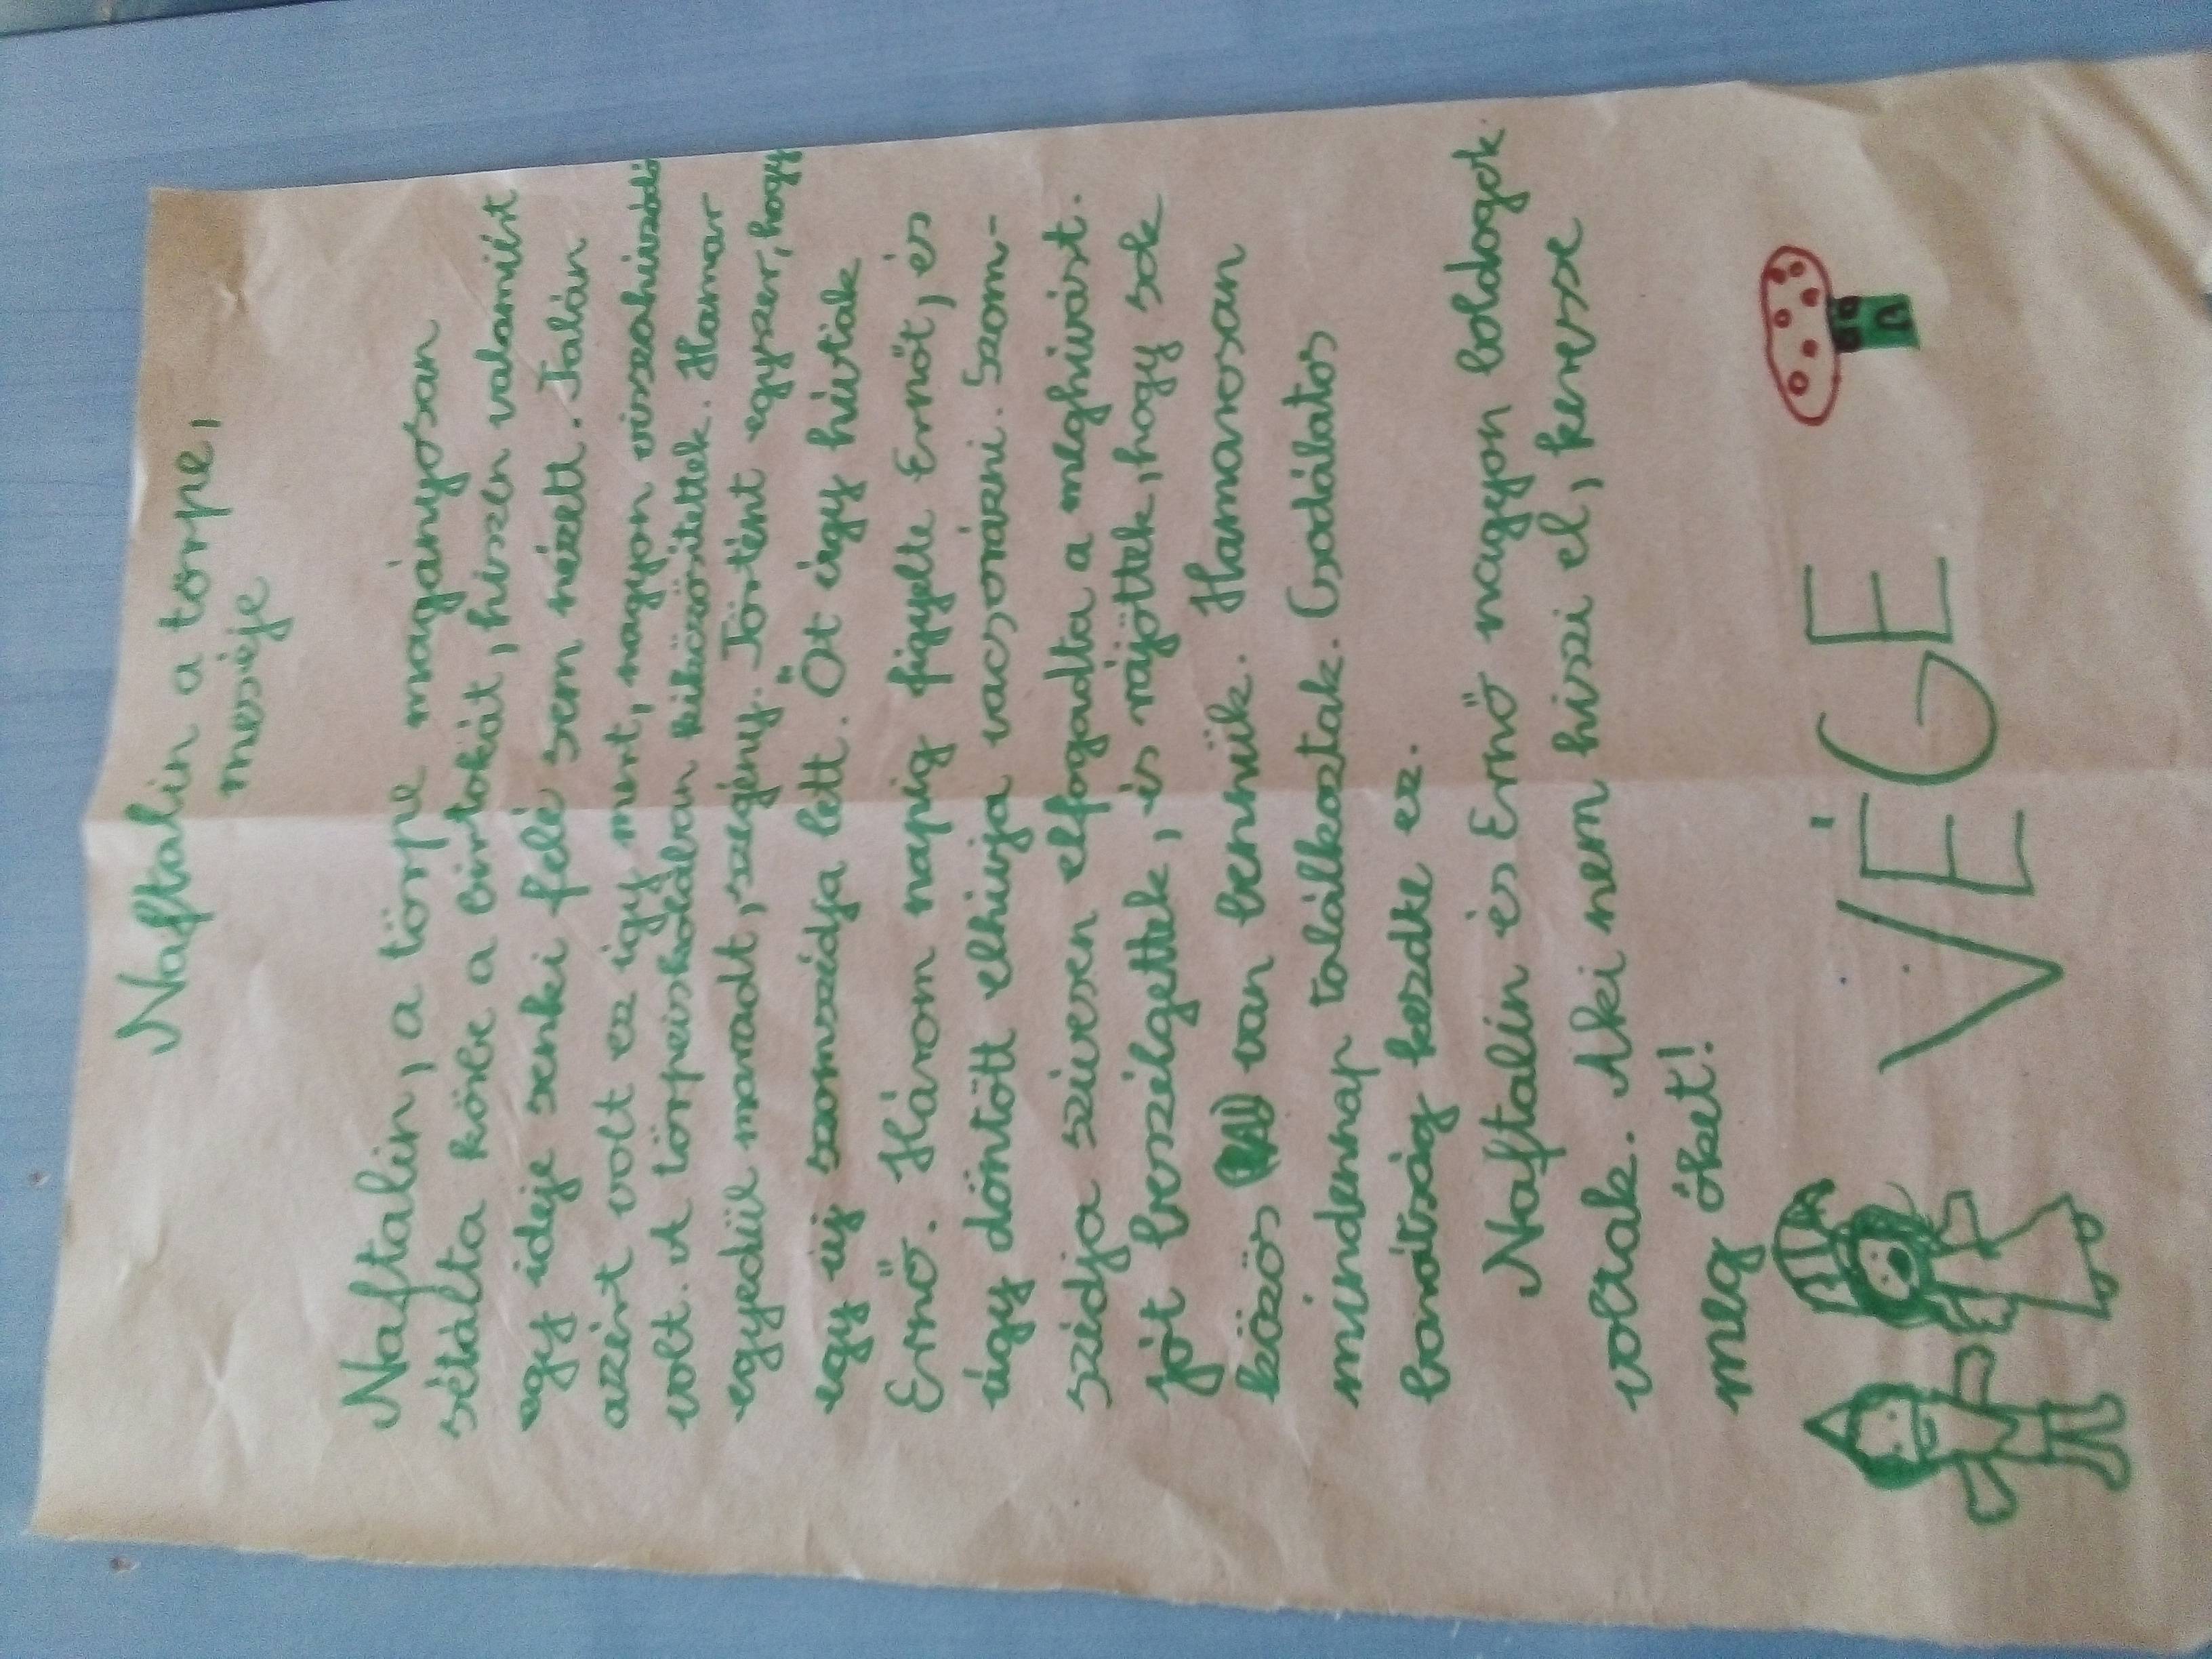 Naftalin a törpe,
meséje
Naftalin, a törpe magányosan
sétálta körbe a birtokát, hiszen valamiért
egy ideje senki felé sem nézett. Talán
azért volt ez így mert, nagyon visszahúzódó
volt. A törpeiskolában kiközösítettek. Hamar
egyedül maradt, szegény. Történt egyszer, hogy
egy új szomszédja lett. Őt úgy hívták
Ernő. Három napig figyelte Ernőt, és
úgy döntött elhívja vacsorázni. Szom-
szédja szívesen elfogadta a meghívást.
jót beszélgettek, és rájöttek, hogy sok
közös van bennük. Hamarosan
mindennap találkoztak. Csodálatos
barátság kezdte ez.
Naftalin és Ernő nagyon boldogok
voltak. Aki nem hiszi el, keresse
meg őket!
VÉGE